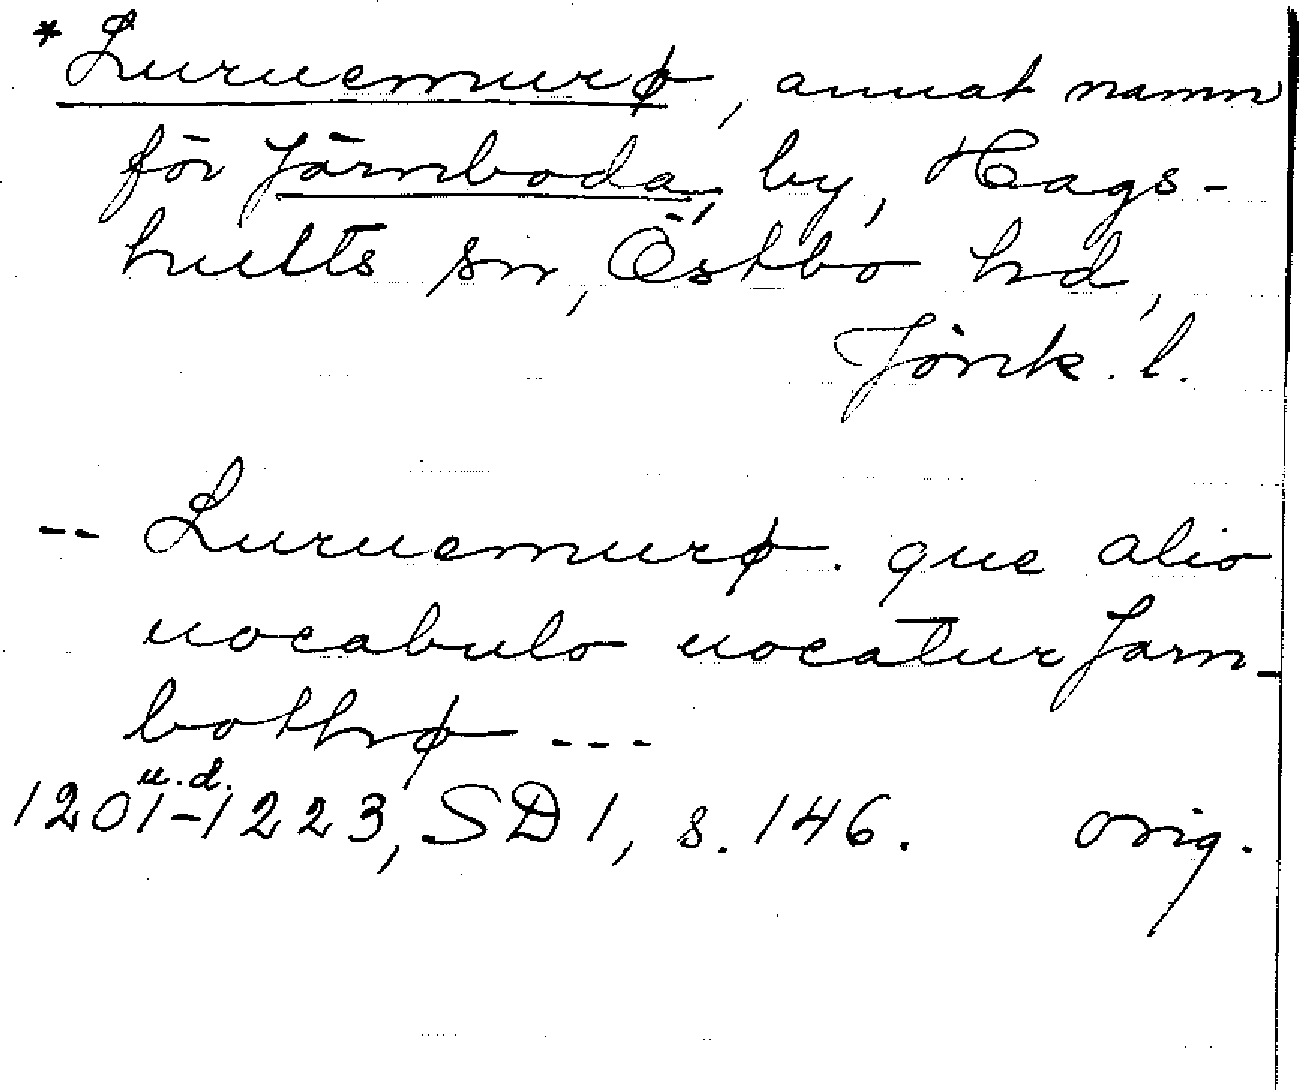 *Luruemurø, annat namn
för Järnboda, by, Hags-
hults sn, Östbo hd,
Jönk. l.
-- Luruemurø. que alio
uocabulo uocatur Jarn-
bothrø ---
u.d.
1201-1223, SD 1, s. 146. orig.